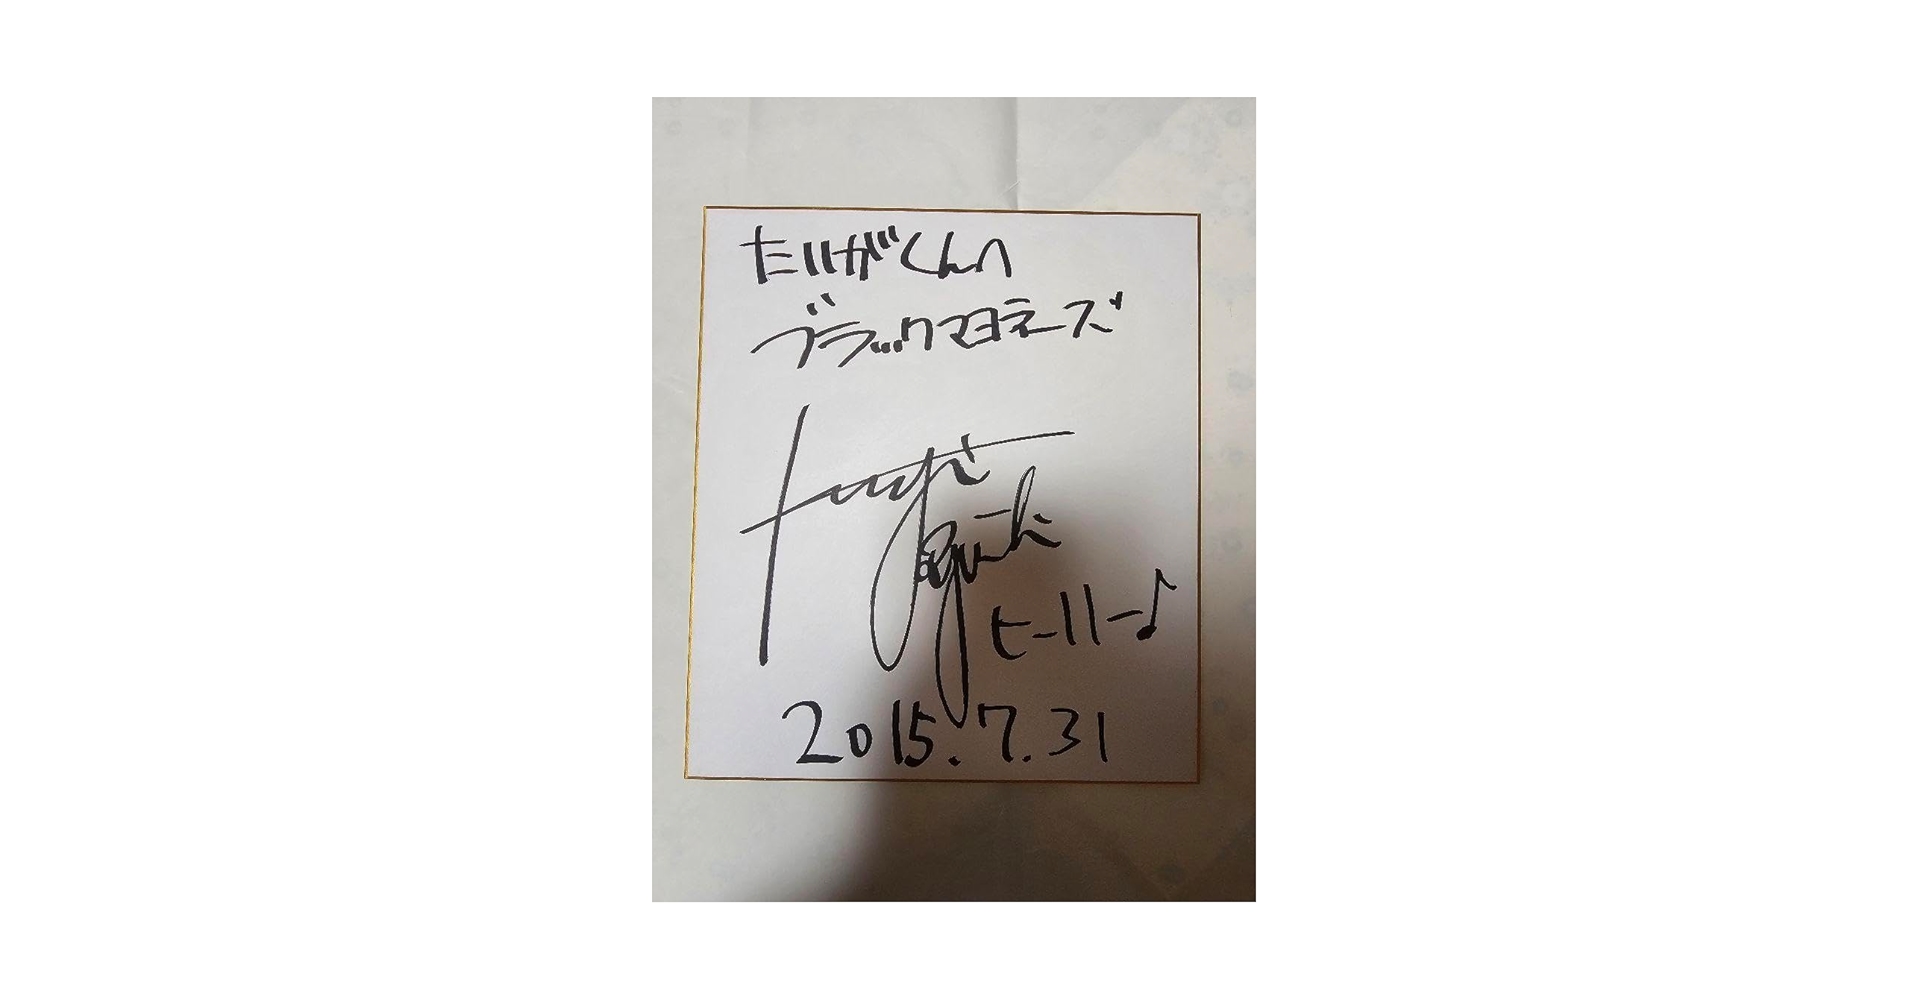 たいがくんへ
ブラックマヨネーズ
ヒーハー♪
2015.7.31